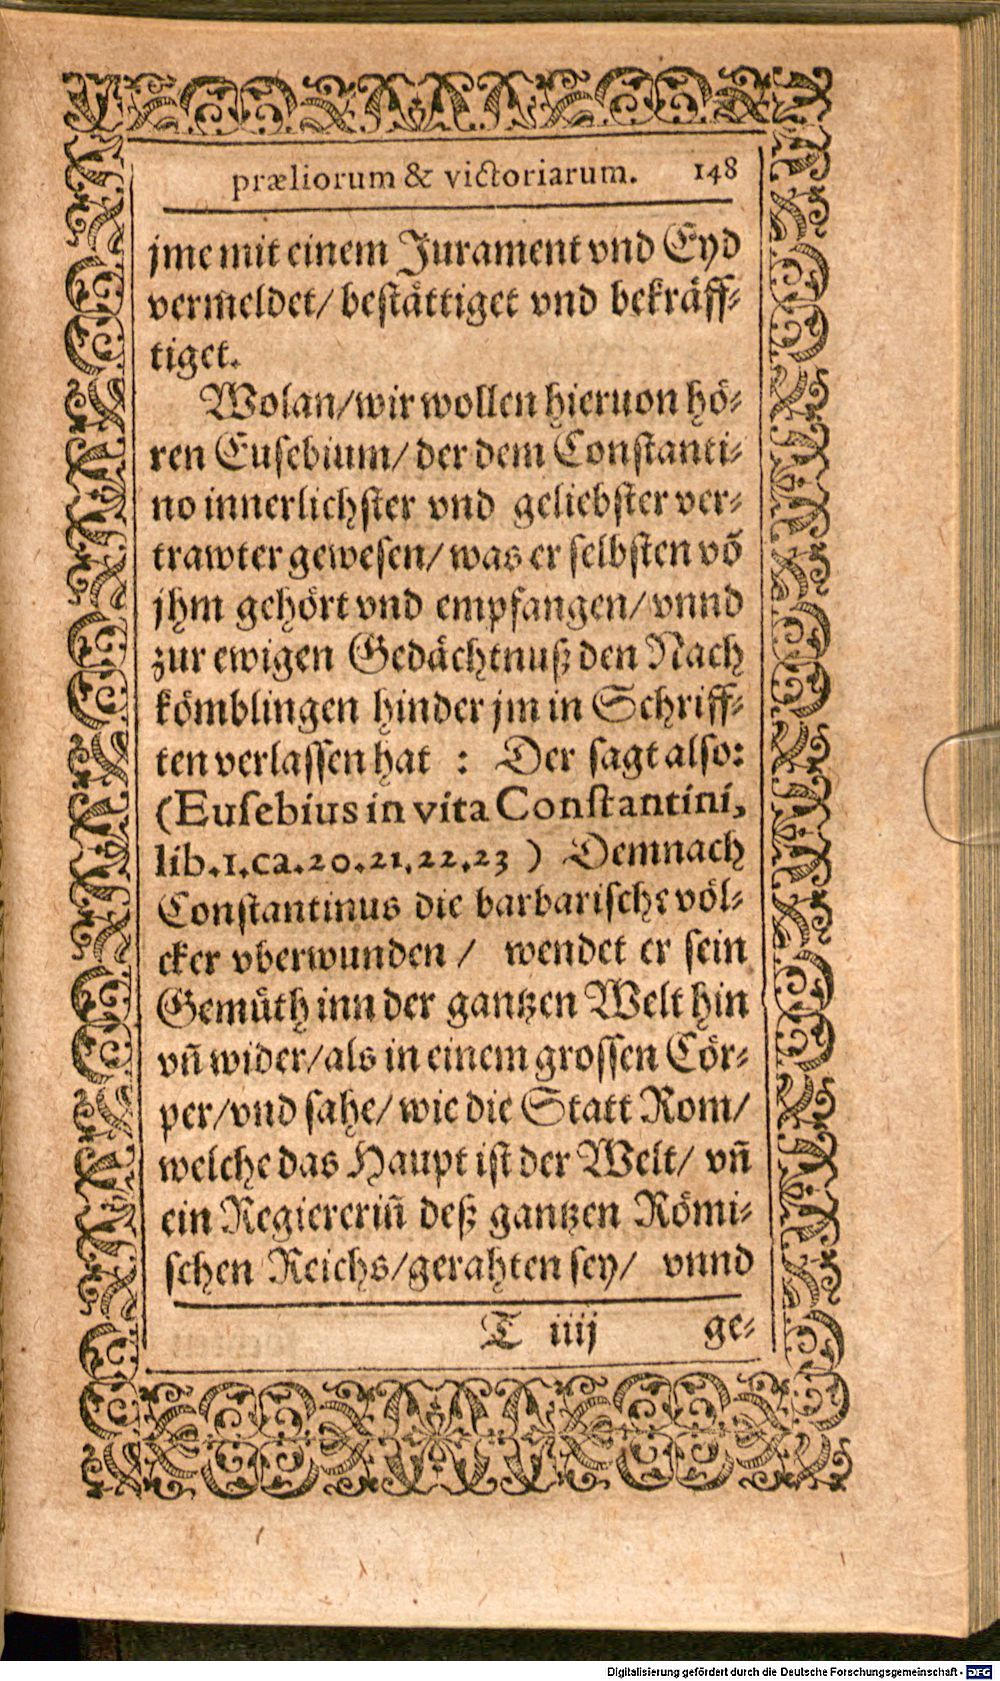 præliorum & victoriarum. 148
jme mit einem Jurament vnd Eyd
vermeldet/ bestättiget vnd bekräff-
tiget.
Wolan/wir wollen hieruon hö-
ren Eusebium/ der dem Constanti-
no innerlichster vnd geliebster ver-
trawter gewesen/ was er selbsten võ
jhm gehört vnd empfangen/ vnnd
zur ewigen Gedächtnuß den Nach
kömblingen hinder jm in Schriff-
ten verlassen hat : Der sagt also:
(Eusebius in vita Constantini,
lib.1.ca.20.21.22.23 ) Demnach
Constantinus die barbarische völ-
cker vberwunden / wendet er sein
Gemüth inn der gantzen Welt hin
vñ wider/als in einem grossen Cör-
per/vnd sahe/ wie die Statt Rom/
welche das Haupt ist der Welt/ vñ
ein Regiererin̄ deß gantzen Römi-
schen Reichs/gerahten sey/ vnnd
T iiij ge-
Digitalisierung gefördert durch die Deutsche Forschungsgemeinschaft - DFG